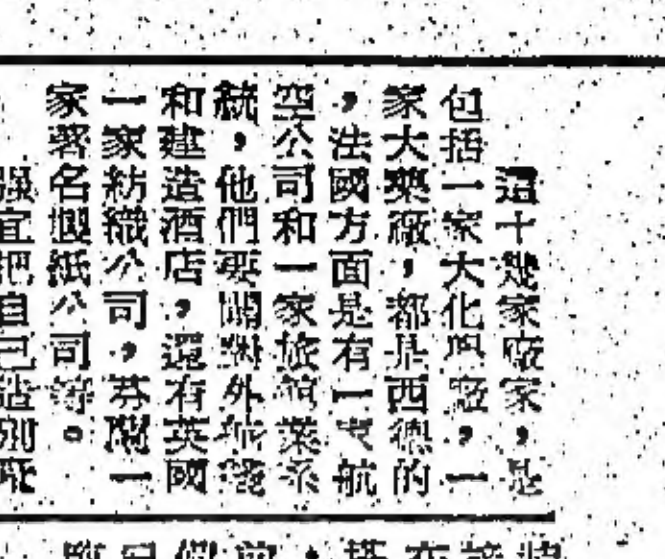 這十幾家廠家，是
包括一家大化學廠，一
家大藥廠，都是西德的
，法國方面是有一家航
空公司和一家旅館業系
統，他們要開對外航綫
和建造酒店，還有英國
一家紡織公司，芬蘭一
家著名製紙公司等。
宜把自己